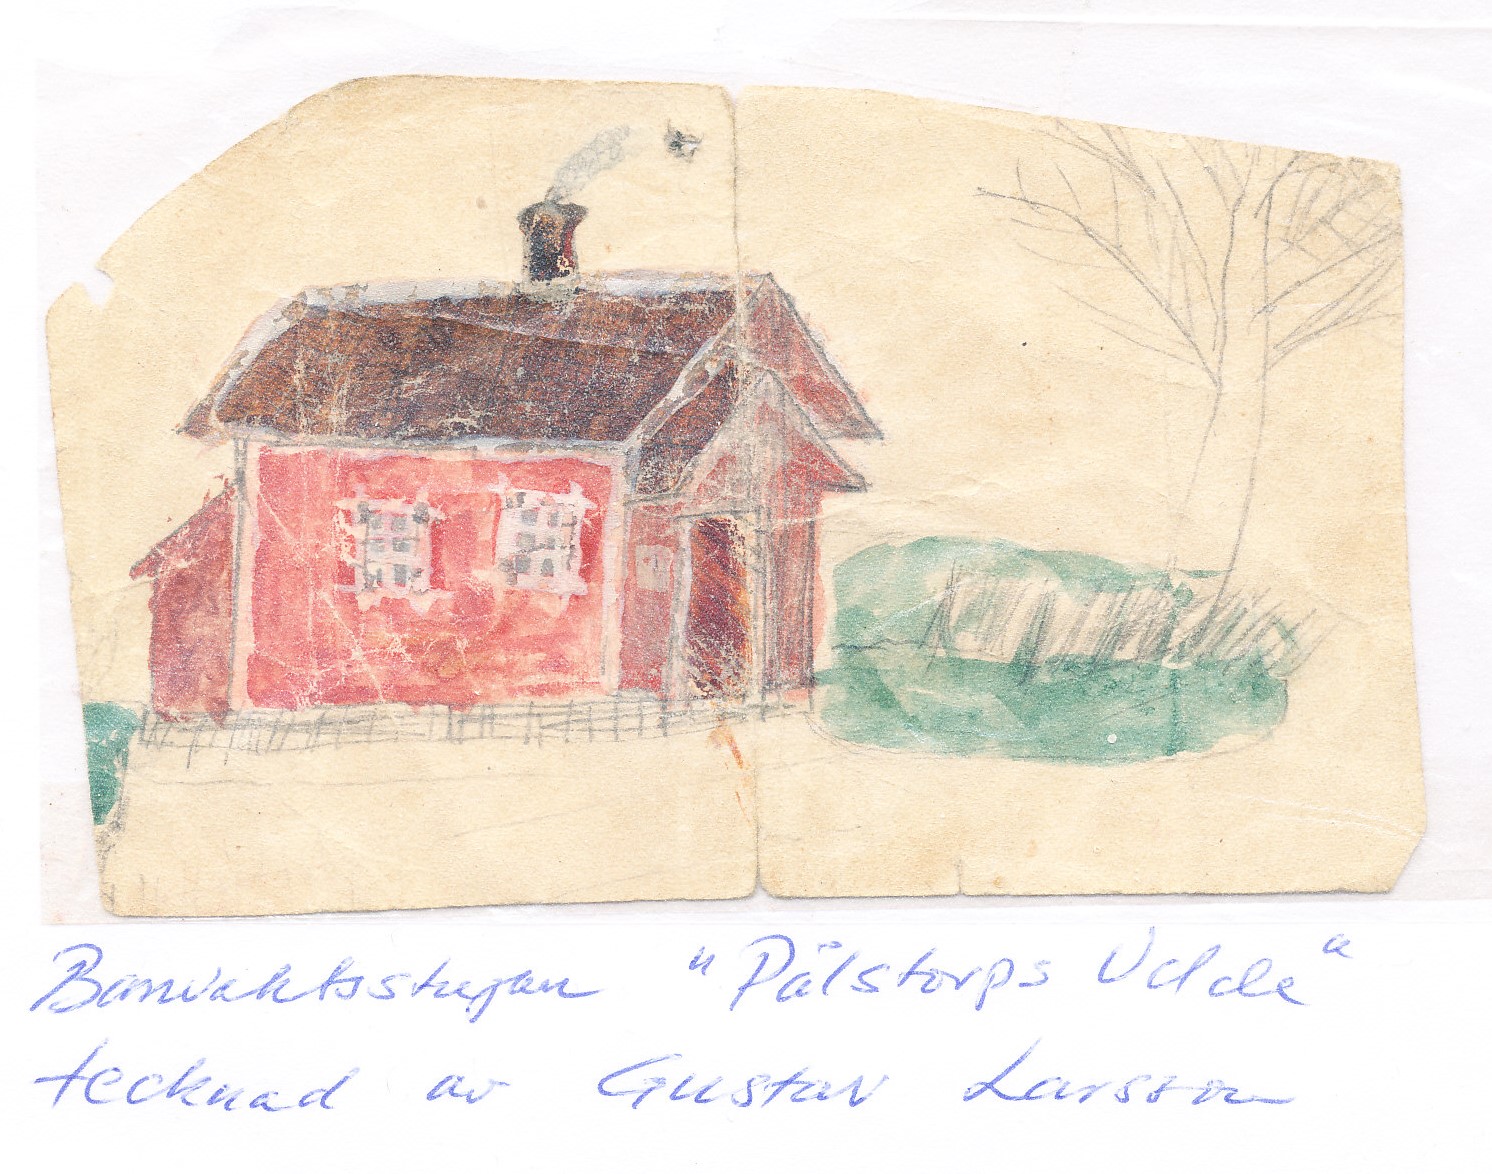 Banvaktsstugan "Pålstorps Udde"
tecknad av Gustav Larsson